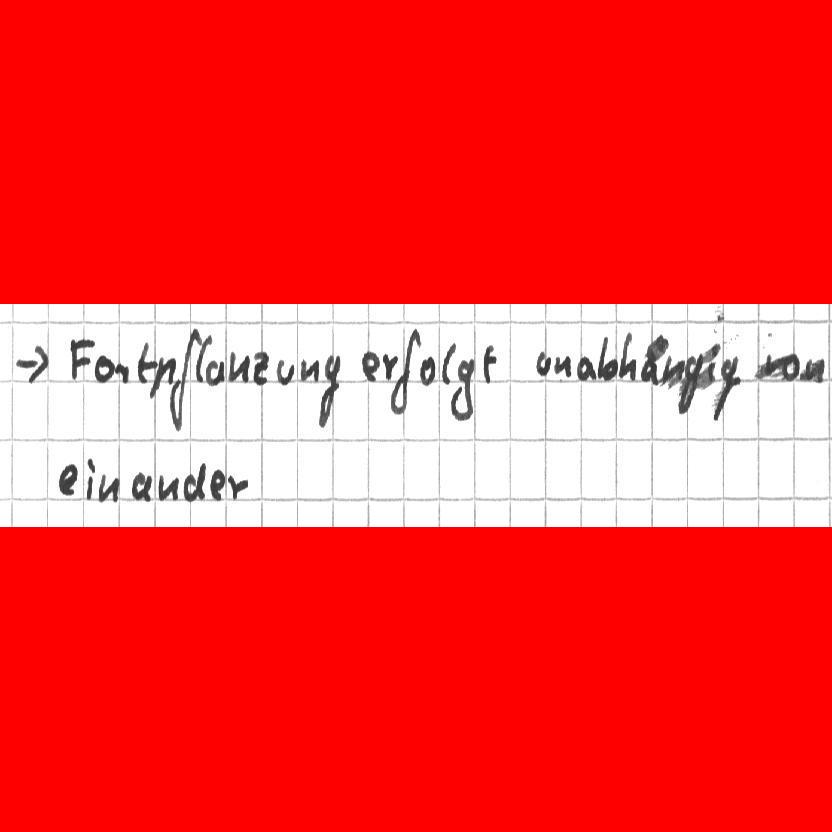 → Fortpflanzung erfolgt unabhängig von
einander